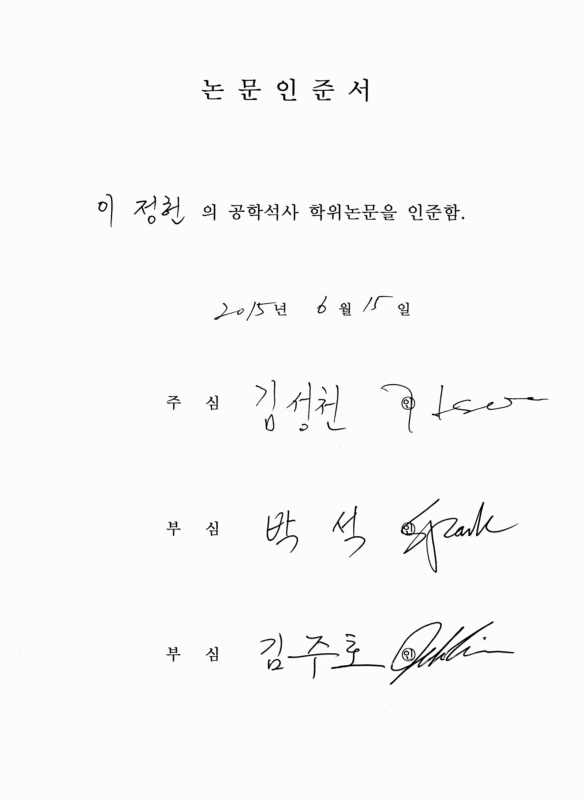 논문인준서
이 정헌 의 공학석사 학위논문을 인준함.
2015년 6월 15일
주 심 김성천 인
부 심 박 석 인 Spark
부 심 김주호 인